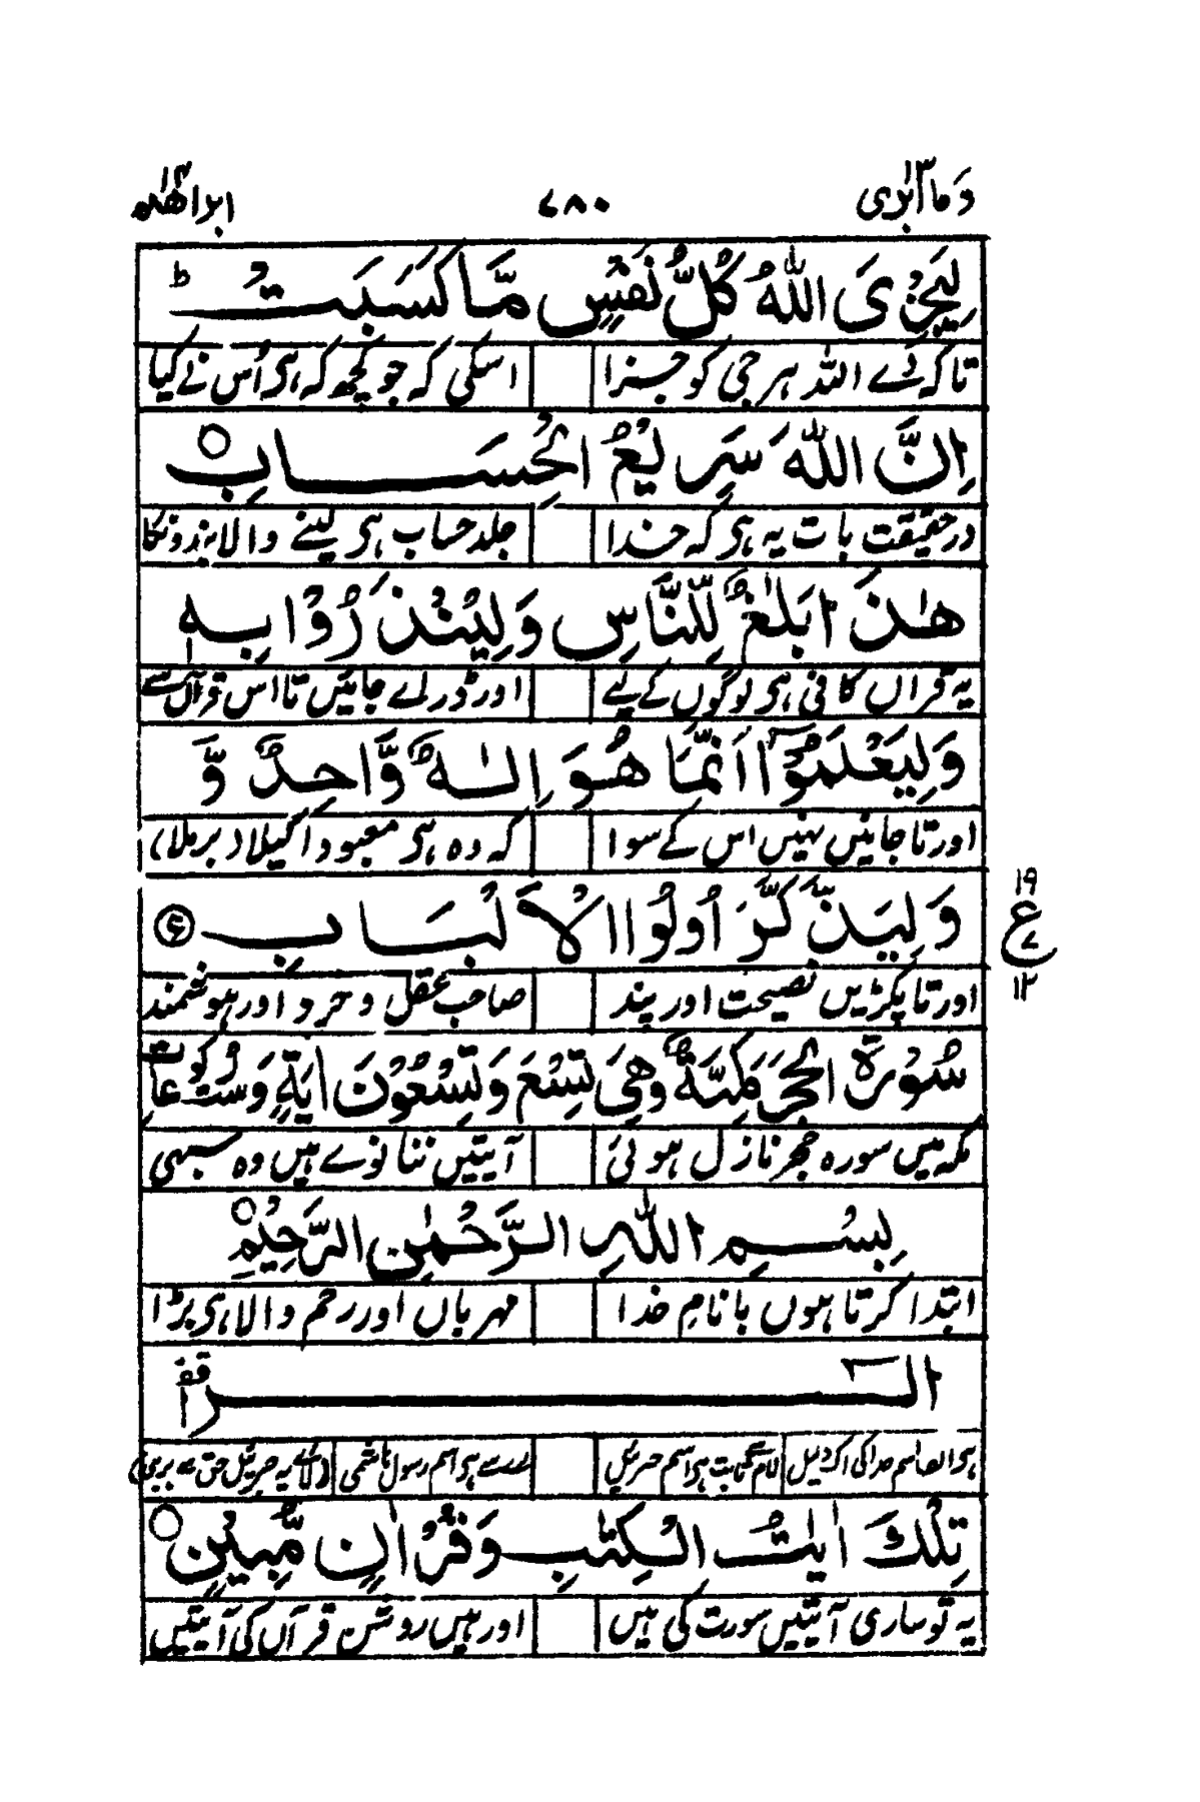 وما ابری ۱۳ ۷۸۰ ابراهیم ۱۴
لِيَجْزِيَ اللّٰهُ كُلَّ نَفْسٍ مَّا كَسَبَتْ ط
تاکہ دے اللہ ہر جی کو جزا اسکی کہ جو کچھ کہ ہی اُس نے کیا
اِنَّ اللّٰهَ سَرِيْعُ الْحِسَابِ ○
درحقیقت بات یہ ہی کہ خدا جلد حساب ہی لینے والا بندونکا
هٰذَا بَلٰغٌ لِّلنَّاسِ وَلِيُنْذَرُوْا بِهٖ
یہ قرآں کافی ہی لوگوں کے لیے اور ڈرلے جائیں تا اس قرآں سے
وَلِيَعْلَمُوْٓا اَنَّمَا هُوَ اِلٰهٌ وَّاحِدٌ وَّ
اور تا جانیں نہیں اس کے سوا کہ وہ ہی معبود اکیلا (برملا)
وَلِيَذَّكَّرَ اُولُوا الْاَلْبَابِ ع
۱۹ ع ۷ ۱۲
اور تا پکڑیں نصیحت اور پند صاحب عقل و خرد اور ہوشمند
سُوْرَةُ الْحِجْرِ مَكِّيَّةٌ وَّهِيَ تِسْعٌ وَتِسْعُوْنَ اٰيَةً وَسِتُّ رُكُوْعَاتٍ
مکہ میں سورہ حجر نازل ہوئی آیتیں ننانوے ہیں وہ سبھی
بِسْمِ اللّٰهِ الرَّحْمٰنِ الرَّحِيْمِ ○
ابتدا کرتا ہوں بانامِ خدا مہرباں اور رحم والا ہی بڑا
الٓرٰ قف
ہی الف اسم خدا کی اک دلیل لام سے ثابت ہی اسم جبرئیل رے سے ہی اسم رسول ہاشمی
تِلْكَ اٰيٰتُ الْكِتٰبِ وَقُرْاٰنٍ مُّبِيْنٍ ○
یہ تو ساری آیتیں سورت کی ہیں اور ہیں روشن قرآں کی آیتیں